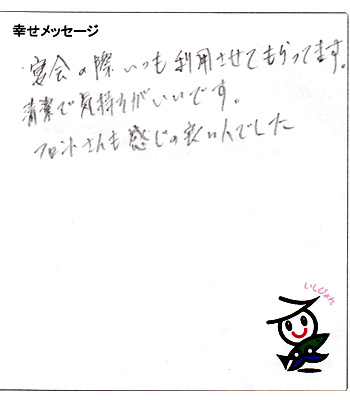 幸せメッセージ
宴会の際いつも利用させてもらってます。
清潔で気持ちがいいです。
フロントさんも感じの良い人でした
いしぴょん